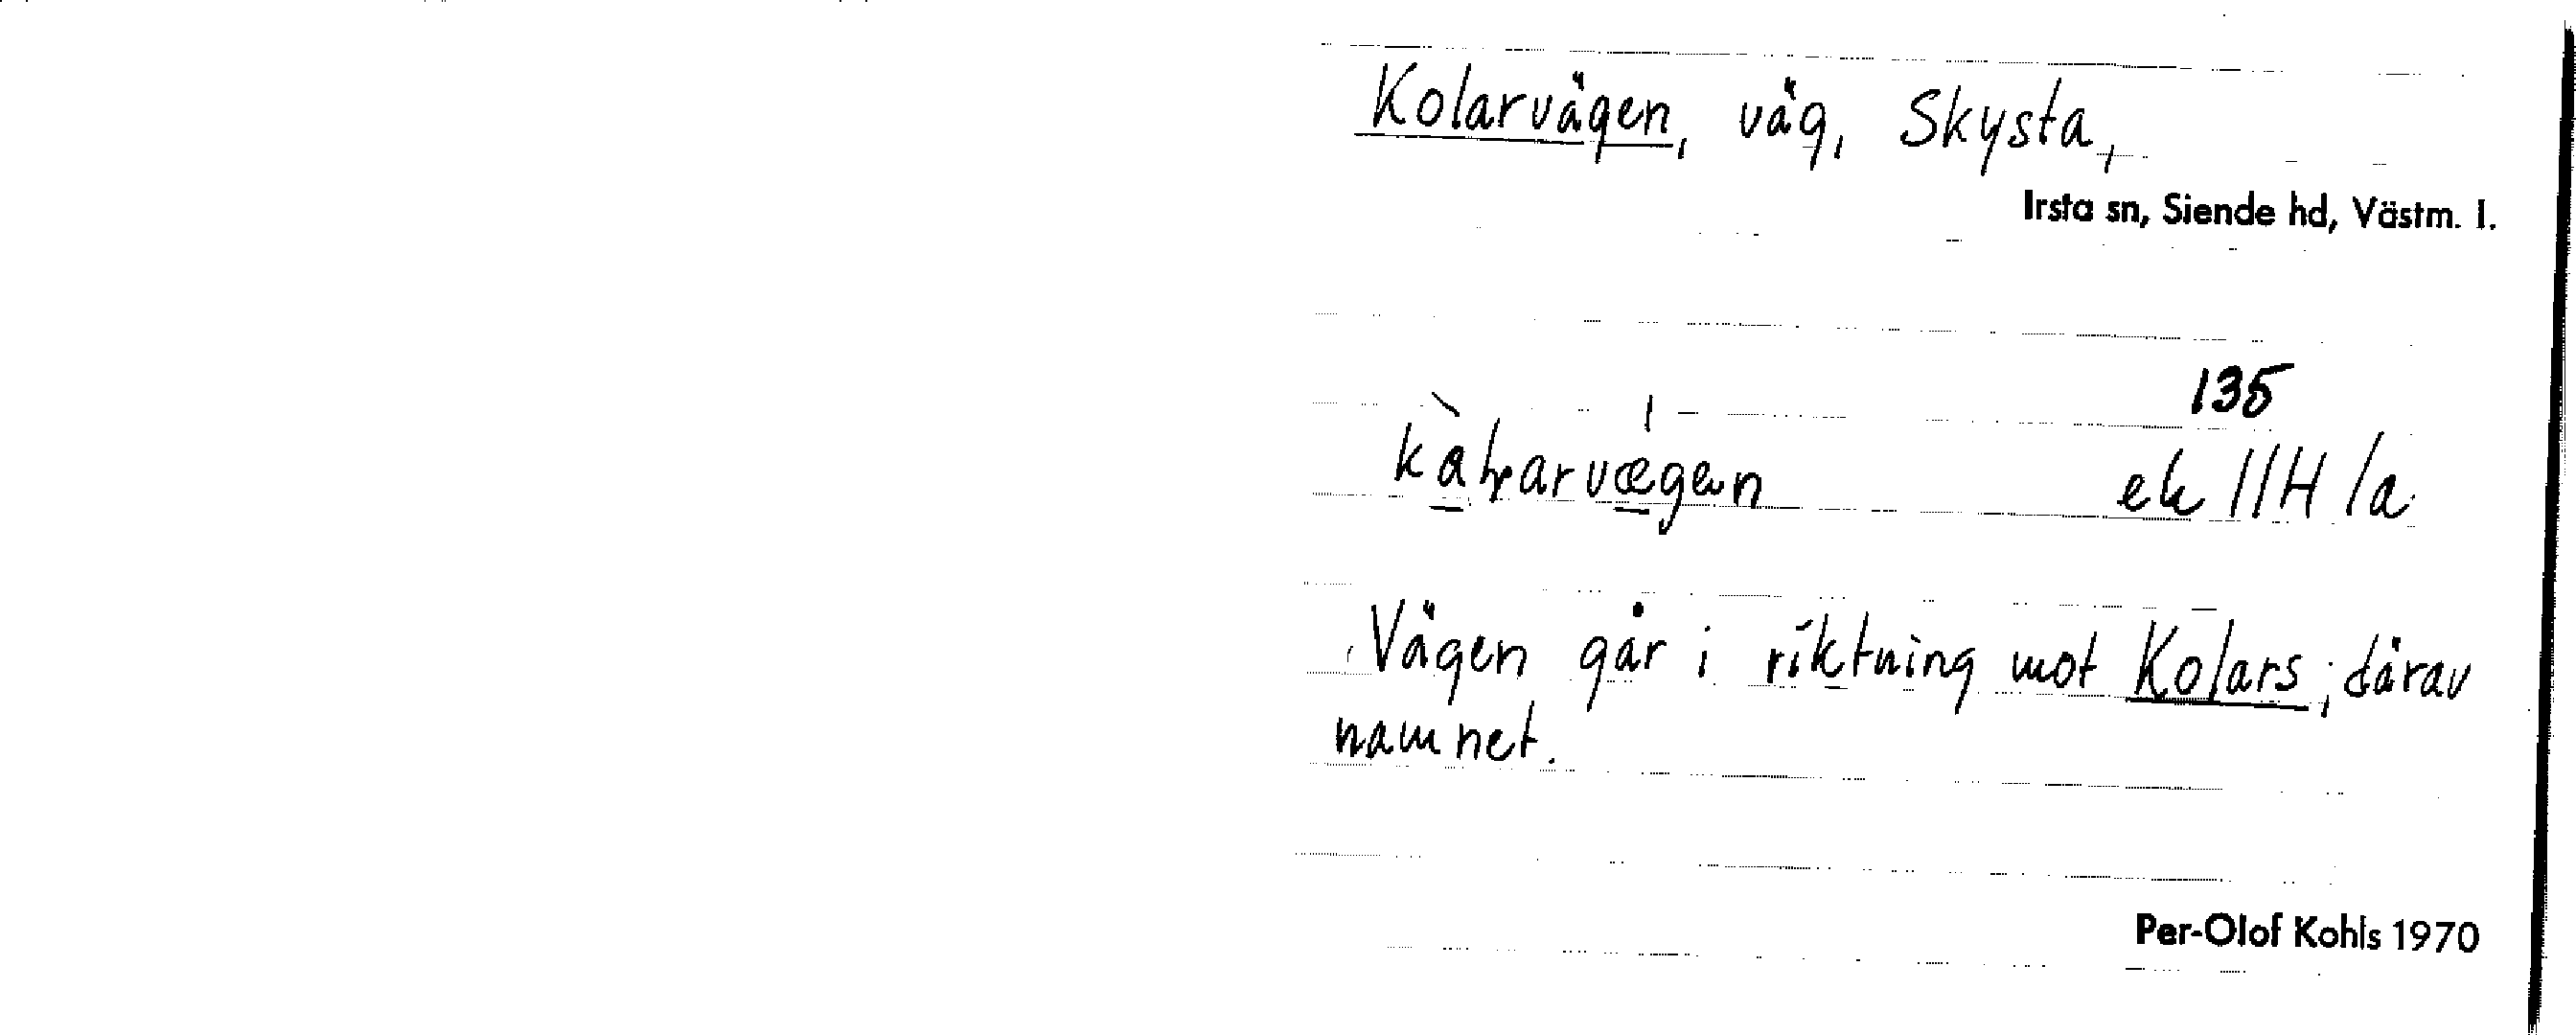 Kolarvägen, väg, Skysta,
Irsta sn, Siende hd, Västm. l.
135
ek 11H 1a
Vägen går i riktning mot Kolars; därav
namnet.
Per-Olof Kohls 1970